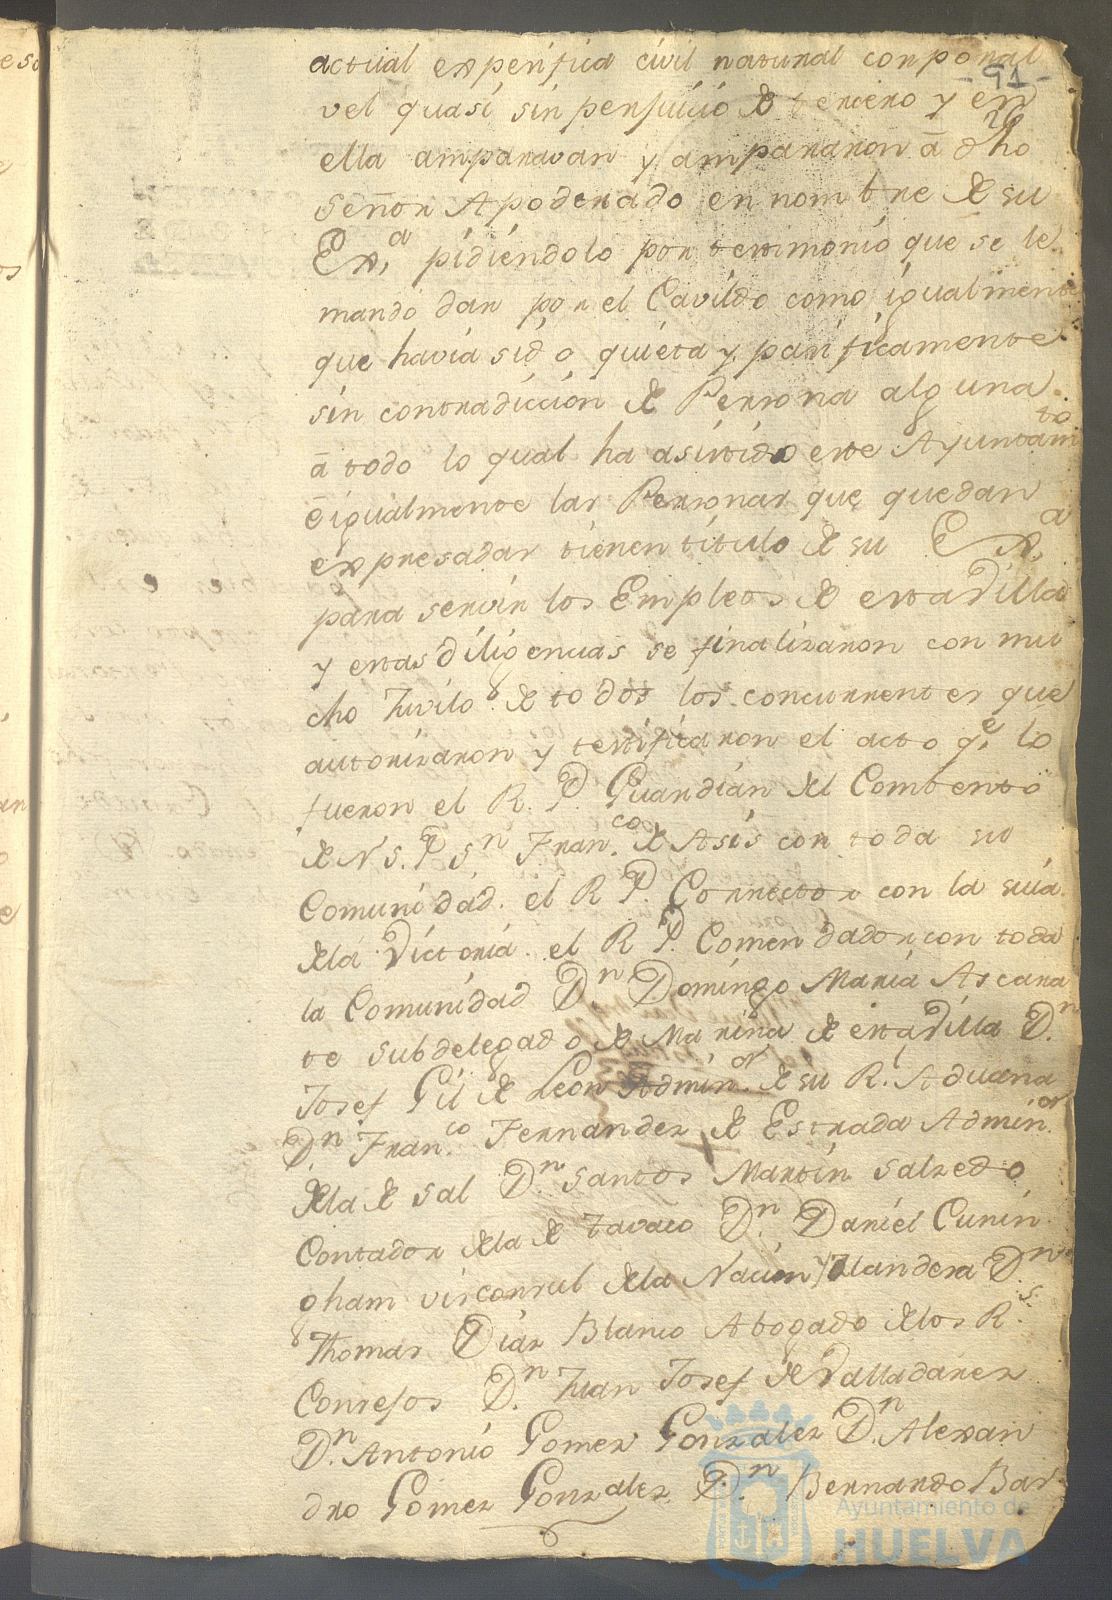 actual expesifica civil natural corporal
- 91 -
vel quasi sin perjuicio de tercero y en
26
ella amparavan y ampararon â dho
señor Apoderado en nombre de su
Exª pidiendolo por testimonio que se le
mandó dar por el Cavildo como igualmente
que havia sido quieta y pasificamente
sin contradiccion de Persona alguna
â todo lo qual ha asistido este Ayuntamto
ê igualmente las Personas que quedan
expresadas tienen titulo de su Exª
para servir los Empleos de esta Villa
y estas diligencias se finalizaron con mu
cho Juvilo de todos los concurrentes que
autorizaron y testificaron el acto qe lo
fueron el R. P. Guardian del Combento
de N S. P. Sn Franco de Asis con toda su
Comunidad. el R P. Corrector con la suia
dela Victoria. el R P. Comendador con toda
la Comunidad Dn Domingo Maria Ascara
te subdelegado de Marina de esta Villa Dn
Josef Gil de Leon Adminor de su Rl Aduana
Dn Franco Fernandez de Estrada Adminor
dela de Sal Dn Santos Martin Salzedo
Contador dela de Tavaco Dn Daniel Cunin
gham visconsul dela Nacion Yrlandesa Dn
Thomas Diaz Blanco Abogado delos Rs
Consejos Dn Juan Josef de Valladares
Dn Antonio Gomez Gonzalez Dn Alexan
dro Gomez Gonzalez Dn Bernardo Bar
Ayuntamiento de
HUELVA